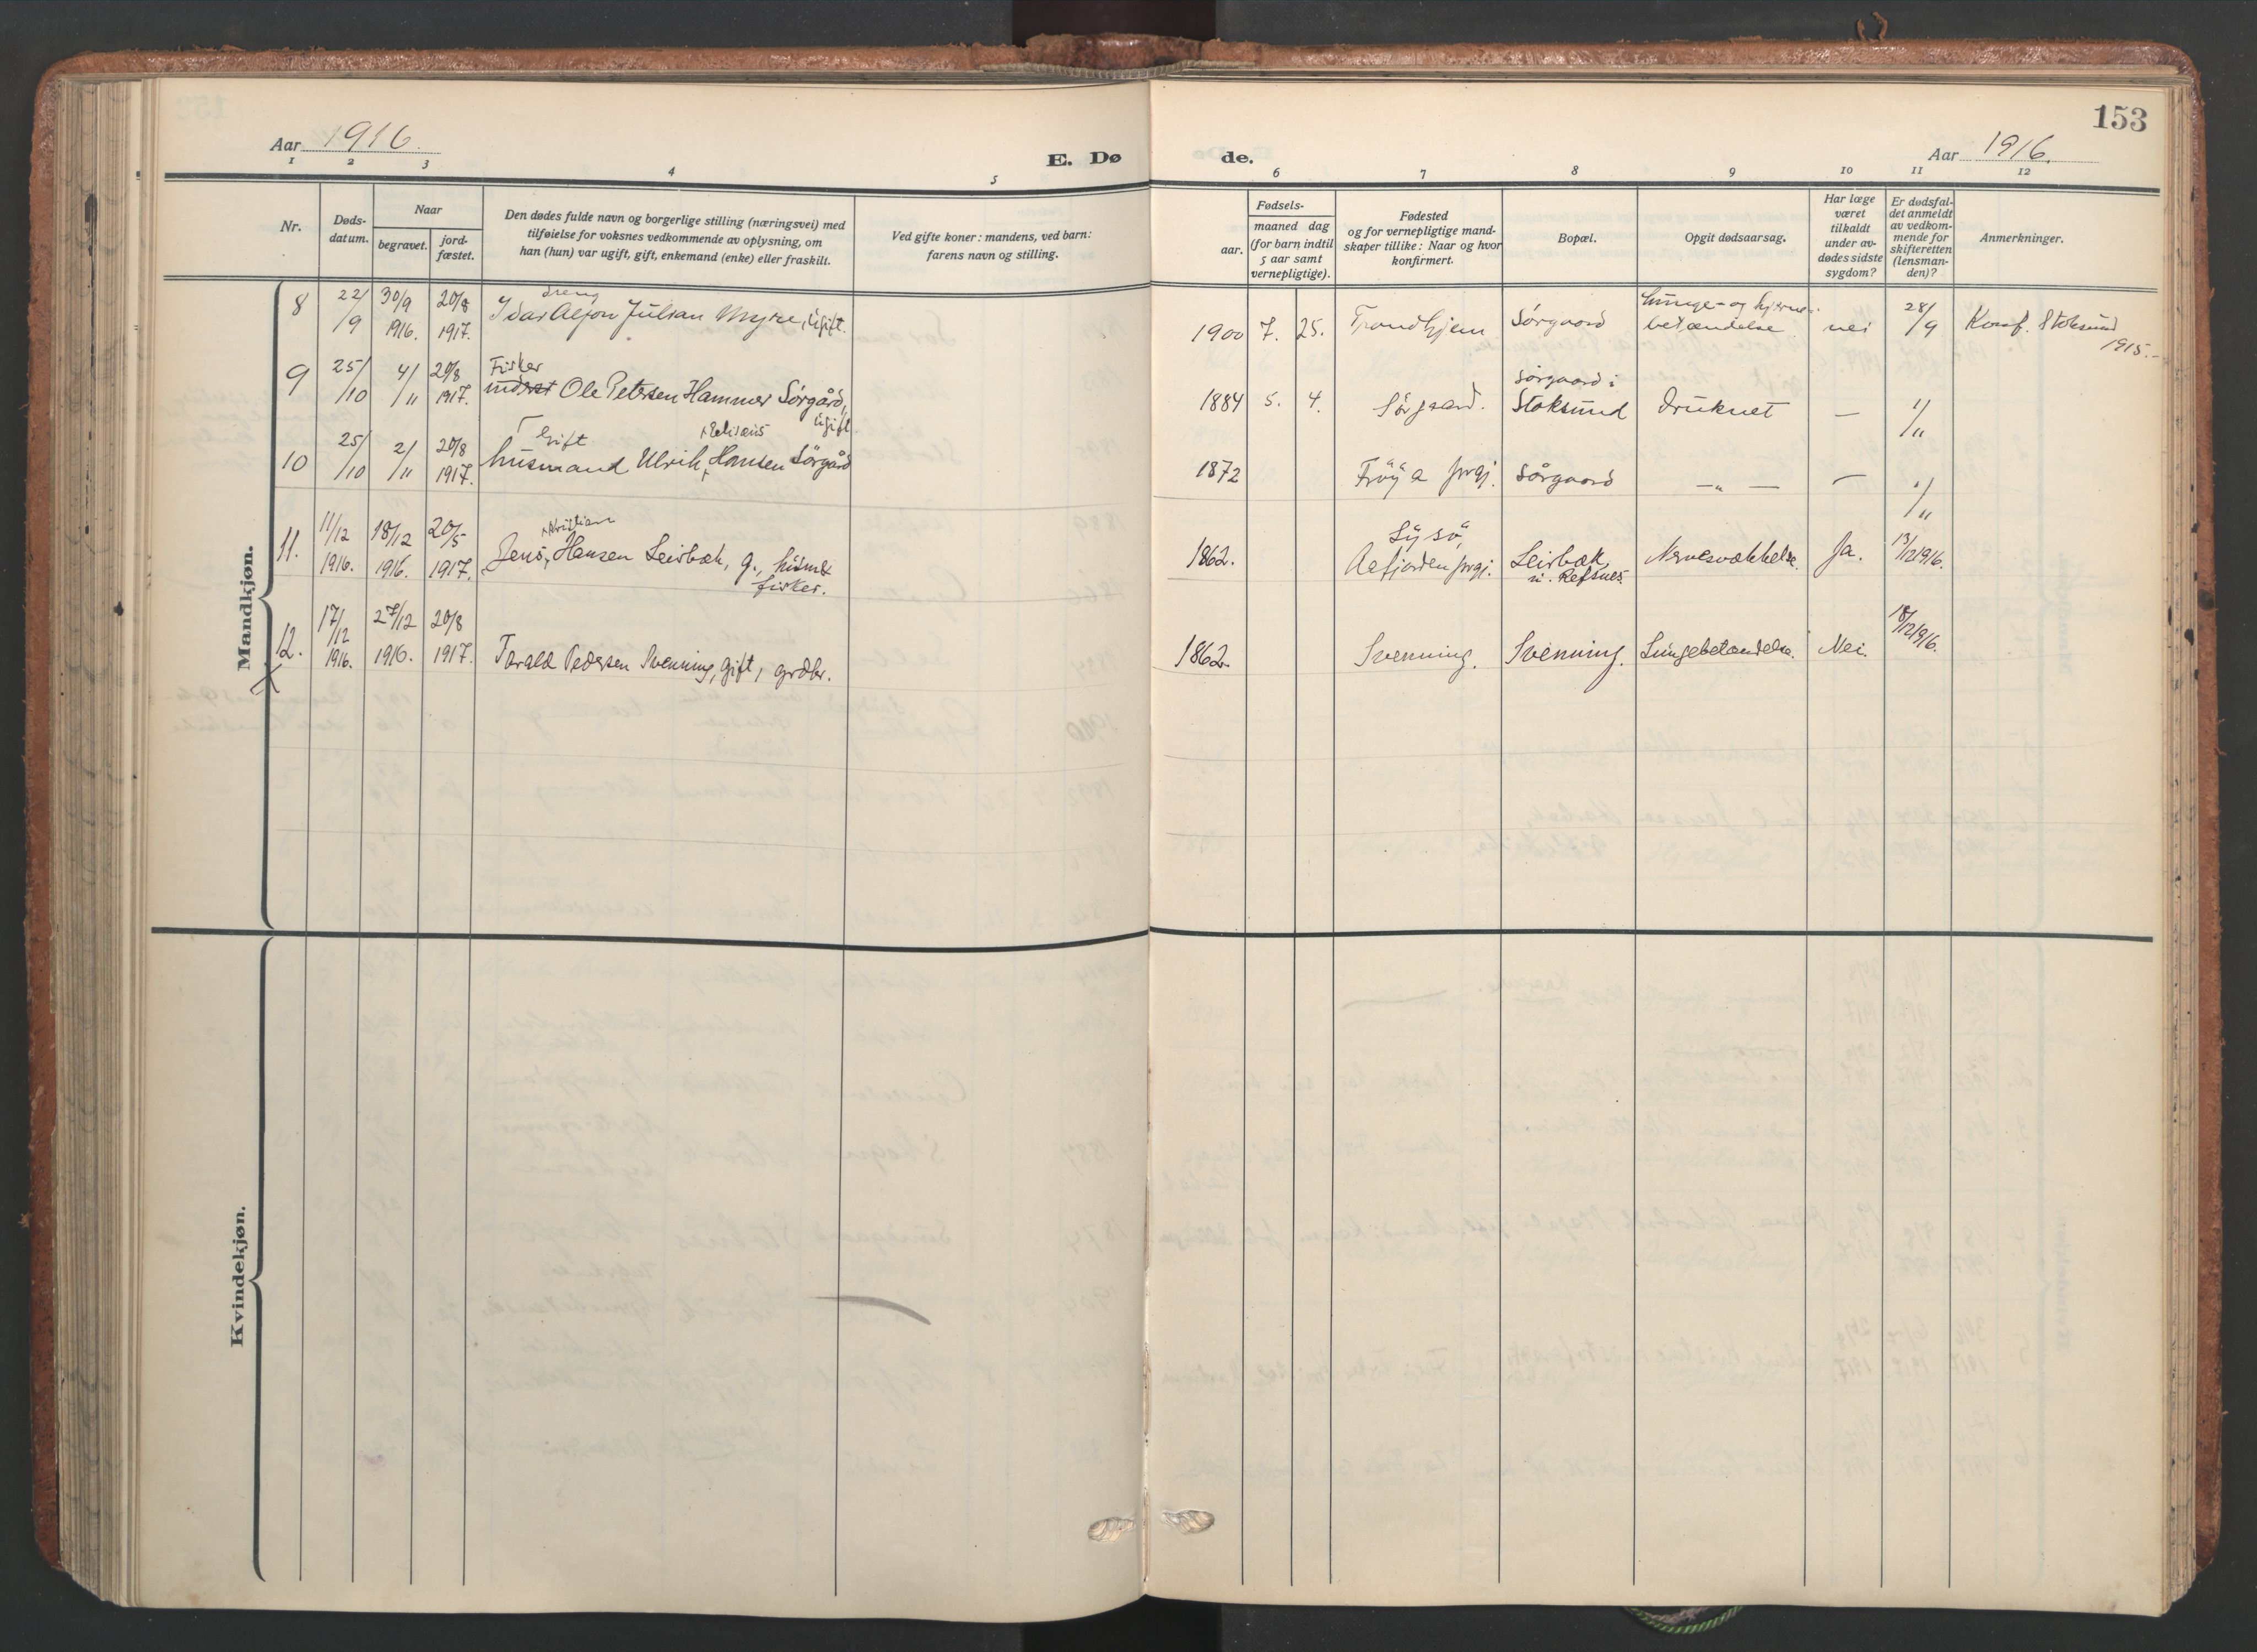 153
Aar 1916.
E. Dø
de.
Aar 1916.
1 2 3 4 5 6 7 8 9 10 11 12
Nr.
Døds-
datum.
Naar
begravet.
jord-
fæstet.
Den dødes fulde navn og borgerlige stilling (næringsvei) med
tilføielse for voksnes vedkommende av oplysning, om
han (hun) var ugift, gift, enkemand (enke) eller fraskilt.
Ved gifte koner: mandens, ved barn:
farens navn og stilling.
Fødsels-
aar.
maaned dag
(for barn indtil
5 aar samt
vernepligtige).
Fødested
og for vernepligtige mand-
skaper tillike: Naar og hvor
konfirmert.
Bopæl.
Opgit dødsaarsag.
Har læge
været
tilkaldt
under av-
dødes sidste
sygdom?
Er dødsfal-
det anmeldt
av vedkom-
mende for
skifteretten
(lensman-
den)?
Anmerkninger.
Mandkjøn.
8 22/9 30/9 1916. 20/8 1917. dreng
Idar Alfon Julian Myre, Ugift. 1900 7. 25. Trondhjem Sørgaard Lunge- og hjerne-
betændelse nei 28/9 Konf. Stoksund
1915.
9 25/10 4/11 20/8 1917. Fisker
Ole Petersen Hammer Sørgård,
Ugift 1884 5. 4. Sørgaard. Sørgaard i
Stoksund Druknet — 1/11
10 25/10 2/11 20/8 1917. Gift
husmand Ulrik Hansen Sørgård 1872 Frøya prgj. Sørgaard — „ — — 1/11
11. 11/12 1916. 18/12 1916. 20/5 1917. Kristian
Jens, Hansen Leirbæk, g., husm &
fisker. 1862. Lysø,
Aafjorden prgj. Leirbæk,
u. Refsnes Nervesvækkelse. Ja. 13/12 1916.
12. 17/12 1916. 27/12 1916. 20/8 1917. Tarald Pedersen Svenning, gift, grdbr. 1862. Svenning. Svenning. Lungebetændelse. Nei. 18/12 1916.
Kvindekjøn.